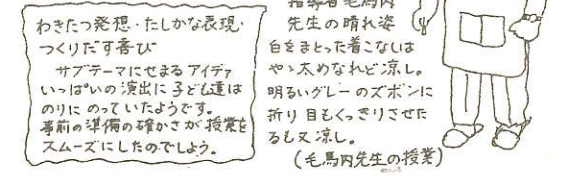 わきたつ発想・たしかな表現・
つくりだす喜び
サブテーマにせまる アイディア
いっぱいの演出に 子ども達は
のりに のっていたようです。
事前の準備の確かさが 授業を
スムーズにしたのでしょう。
指導者毛馬内
先生の晴れ姿
白をまとった着こなしは
やゝ太めなれど涼し。
明るいグレーのズボンに
折り目もくっきりさせた
るも又涼し。
(毛馬内先生の授業)